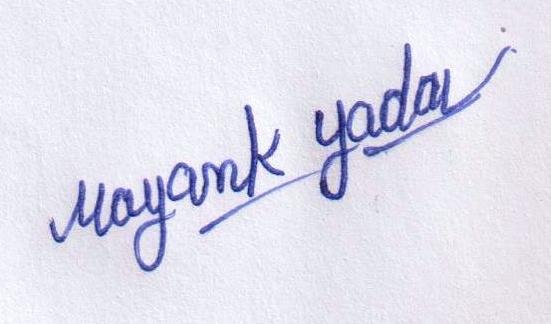 Mayank Yadav